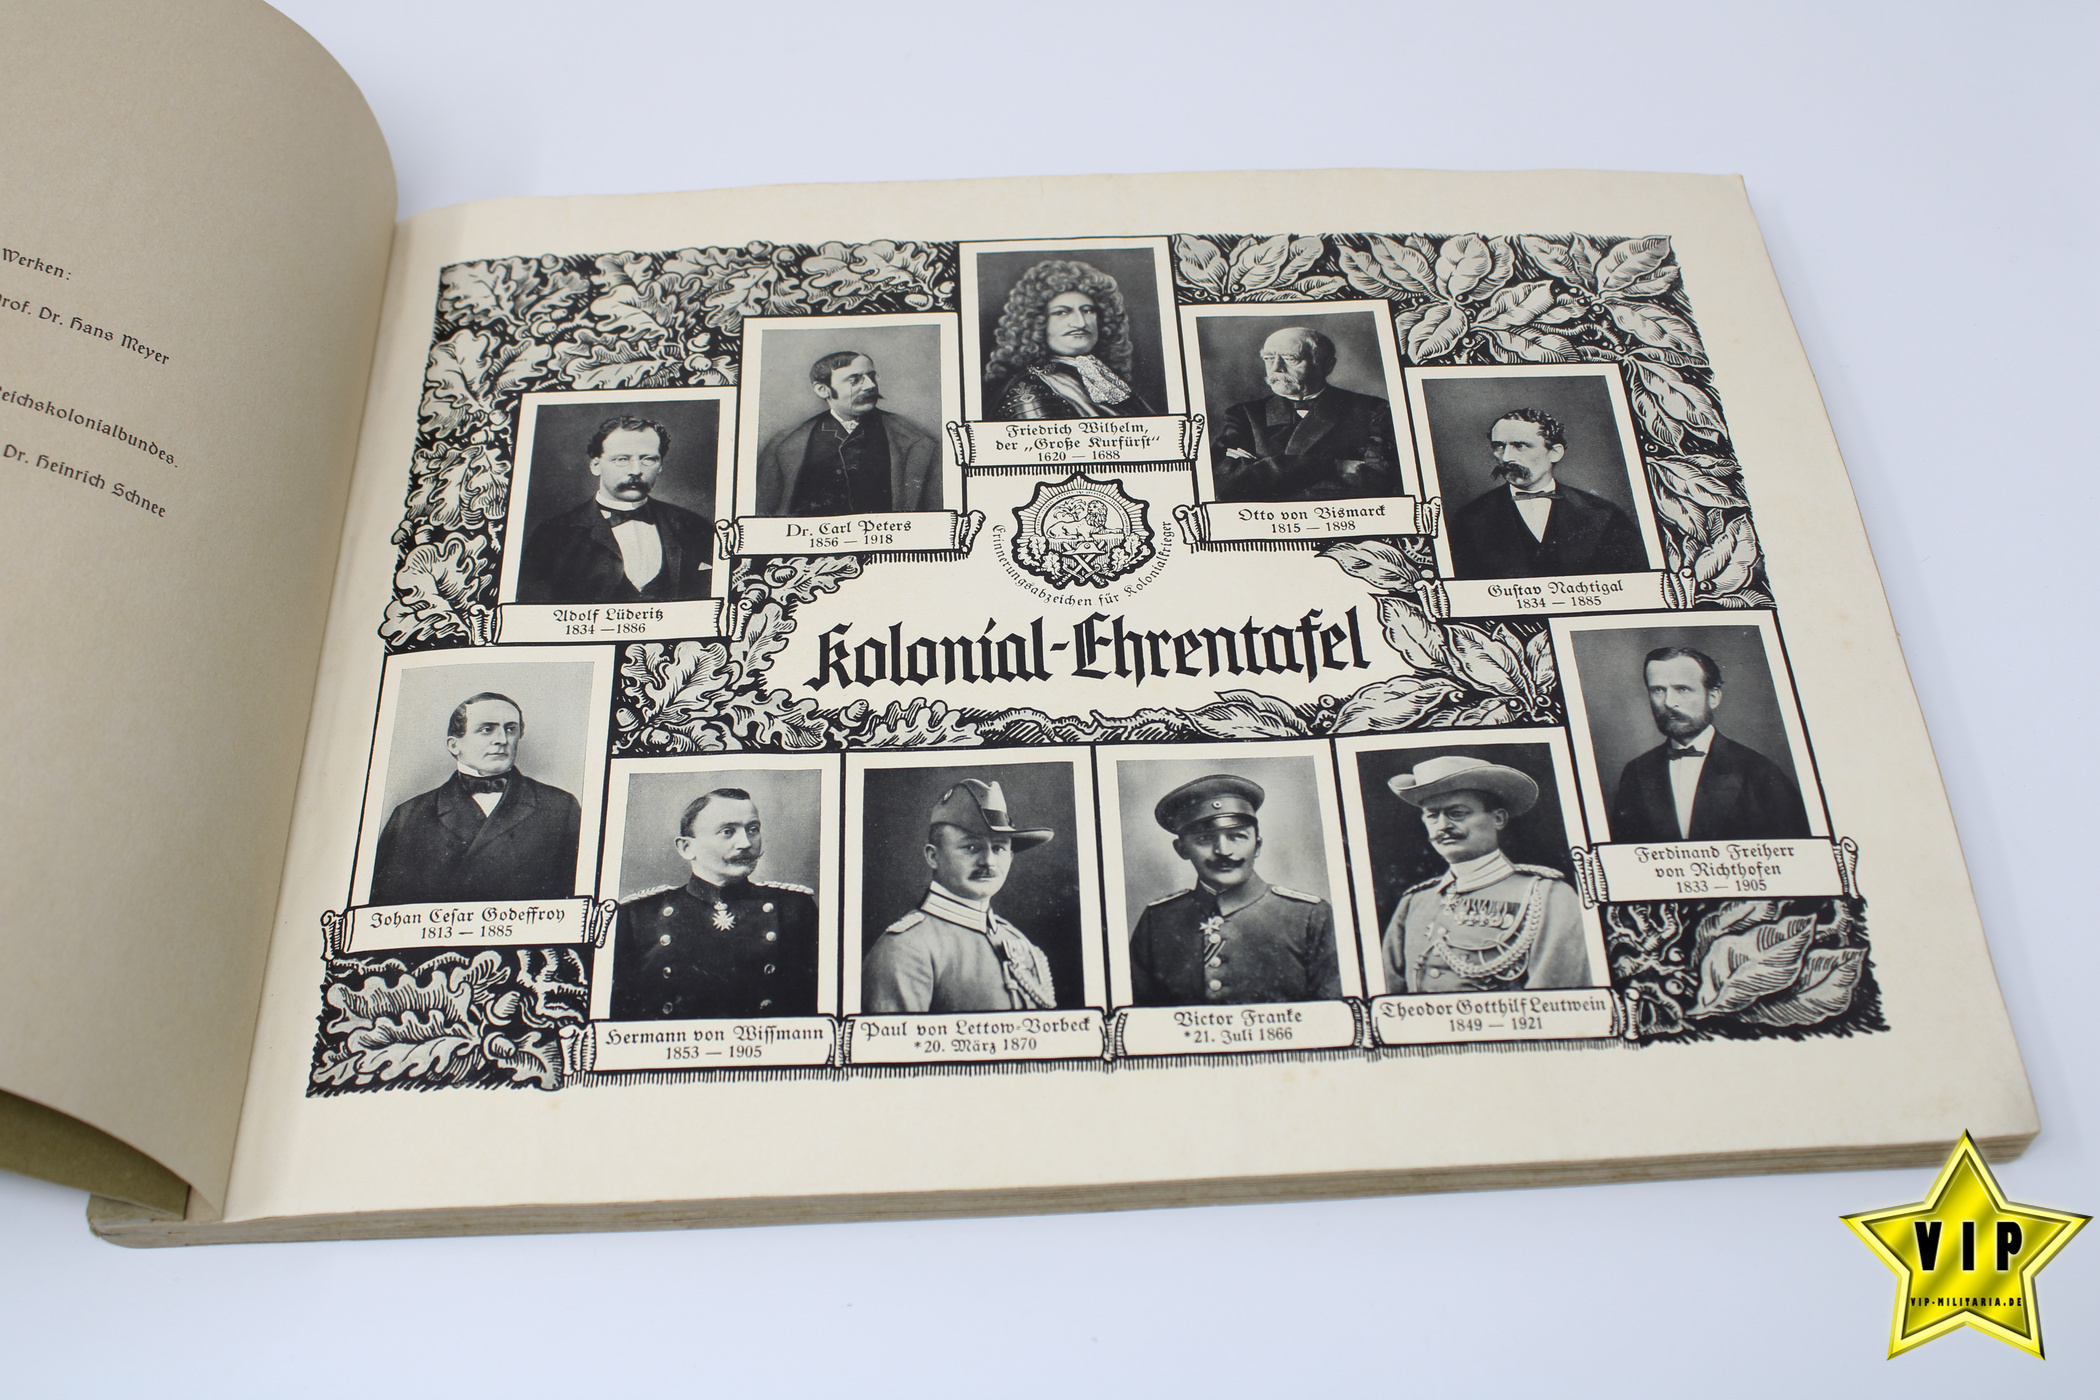 Werken:
Prof. Dr. Hans Meyer
Reichskolonialbundes.
Dr. Heinrich Schnee
Friedrich Wilhelm,
der „Große Kurfürst“
1620 — 1688
Dr. Carl Peters
1856 — 1918
Otto von Bismarck
1815 — 1898
Adolf Lüderitz
1834 —1886
Gustav Nachtigal
1834 — 1885
Erinnerungsabzeichen für Kolonialkrieger
Kolonial-Ehrentafel
Johan Cesar Godeffroy
1813 — 1885
Ferdinand Freiherr
von Richthofen
1833 — 1905
Hermann von Wissmann
1853 — 1905
Paul von Lettow-Vorbeck
*20. März 1870
Victor Franke
*21. Juli 1866
Theodor Gotthilf Leutwein
1849 — 1921
VIP
VIP-MILITARIA.DE